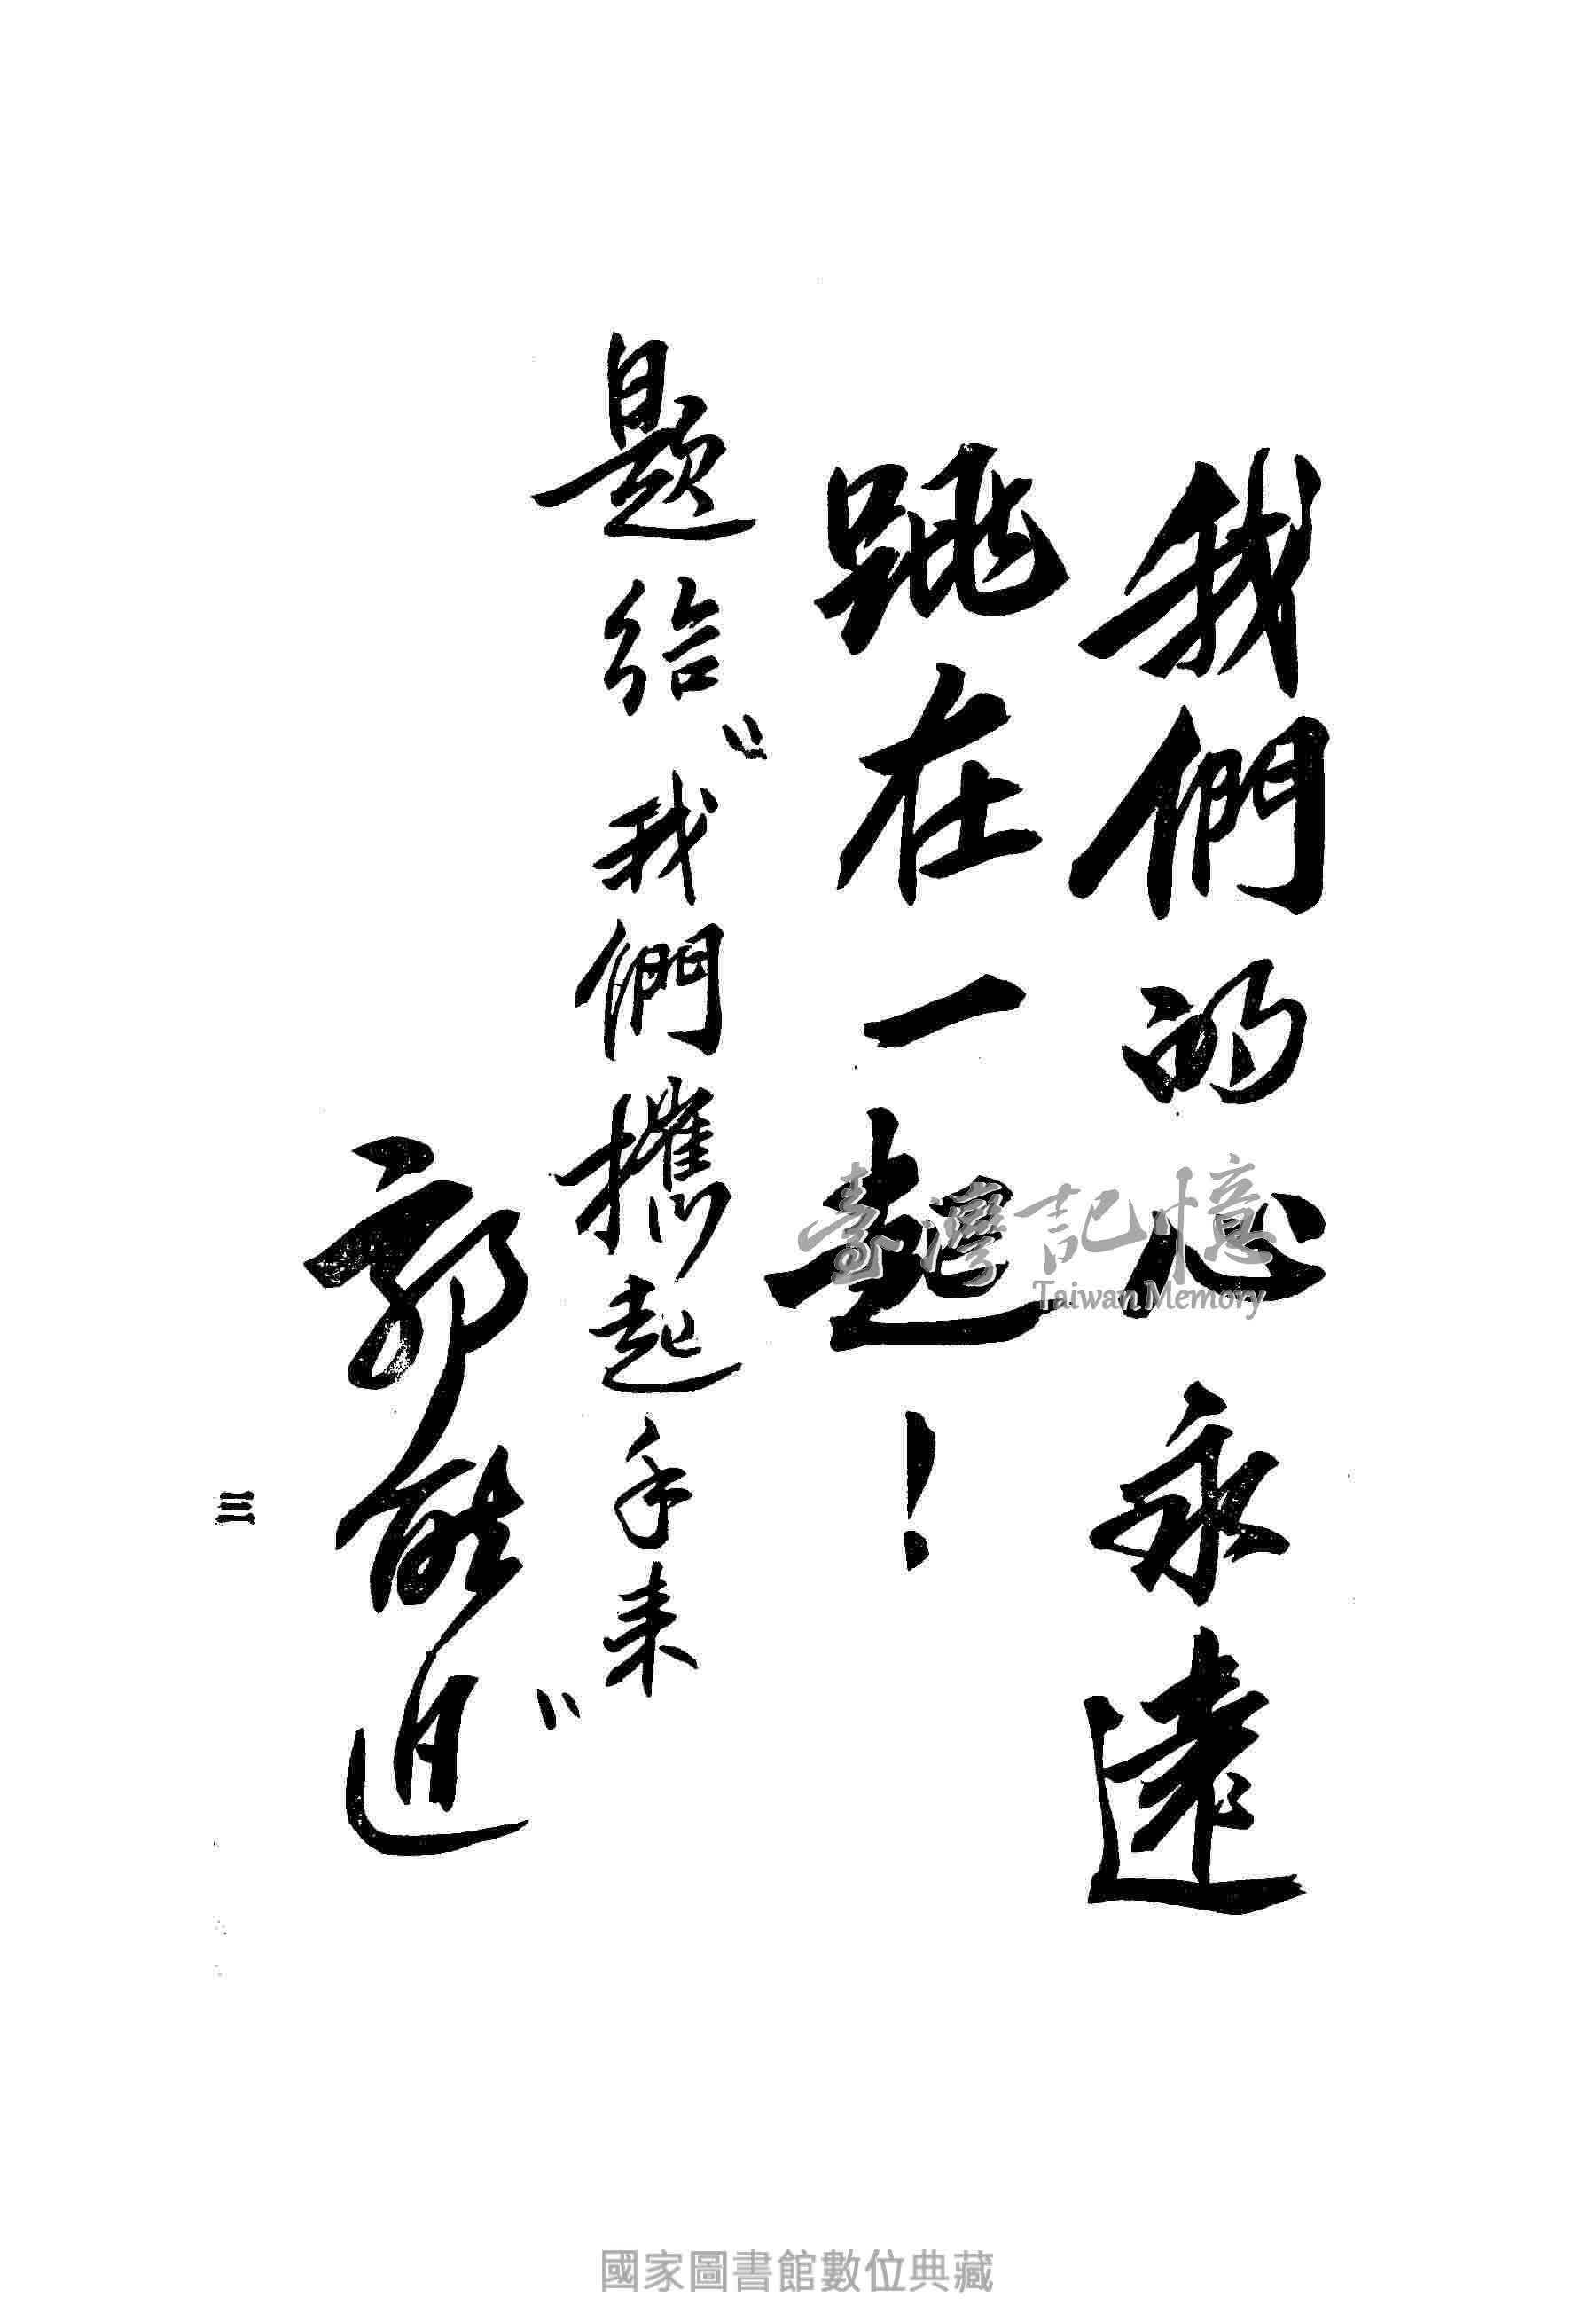 我們的心永遠
跳在一起！
題給“我們攜起手来”
郭
三
臺灣記憶
Taiwan Memory
國家圖書館數位典藏